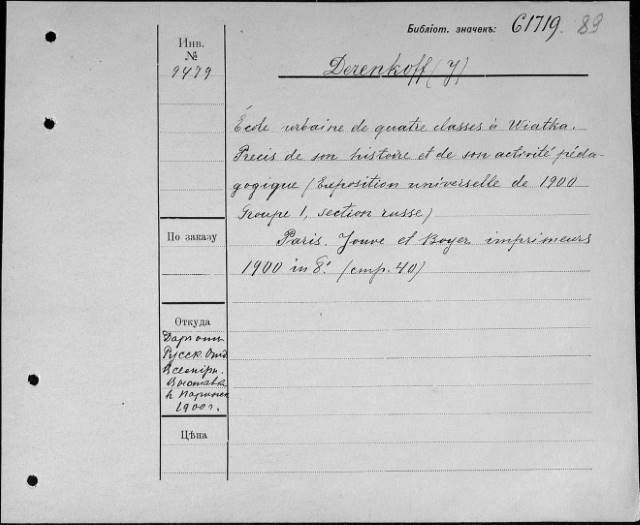 Библіот. значекъ: C1719. 89
Инв.
№
9479
Derenkoff (J)
École urbaine de quatre classes à Wiatka.
Précis de son histoire et de son activité péda-
gogique (Exposition universelle de 1900
Groupe I, section russe)
Paris. Jouve et Boyer imprimeurs
1900 in 8º. (стр. 40)
По заказу
Откуда
Даръ отъ
Русск. Отд.
Всемірн.
Выставк.
въ Парижѣ
1900 г.
Цѣна